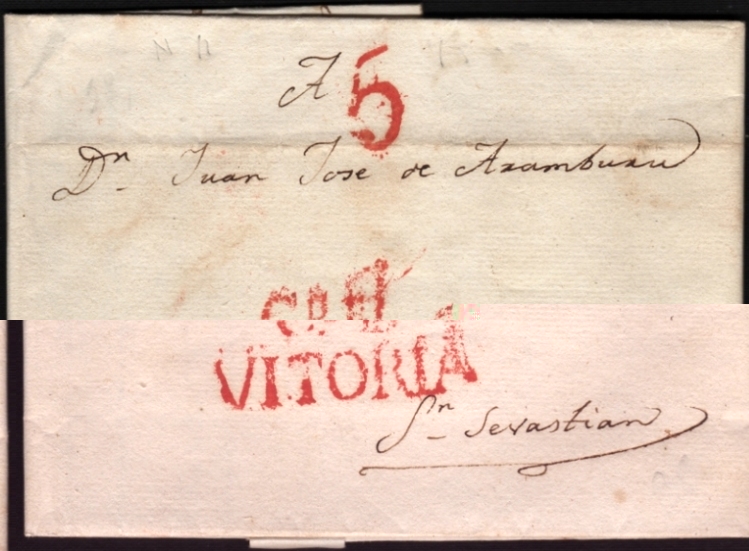 A 5
Dn Juan Jose de Aramburu
VITORIA
Sn Sevastian